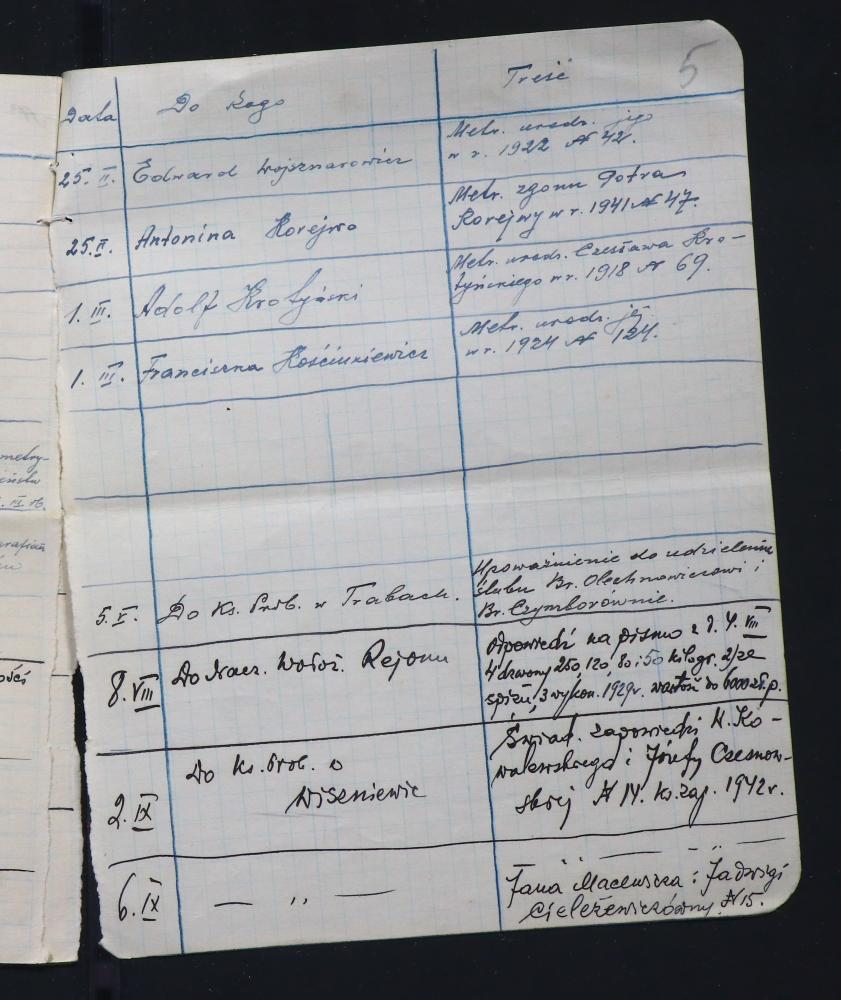 5
Data Do kogo Treść
25. II. Edward Wojsznarowicz Metr. urodz. jego
w r. 1922 № 42.
25. II. Antonina Korejwo Metr. zgonu Potra
Korejwy w r. 1941 № 47.
1. III. Adolf Krotyński Metr. urodz. Czesława Kro-
tyńskiego w r. 1918 № 69.
1. III. Franciszka Kościukiewicz Metr. urodz. jej
w r. 1924 № 124.
5. V. Do Ks. Prob. w Trabach. Upoważnienie do udzielenia
ślubu Br. Olechnowiczowi i
Br. Czymborównie.
8. VIII Do Nacz. Wołoż. Rejonu Odpowiedź na pismo z d. 4. VIII
4 dzwony 250, 120, 80 i 50 kilogr. 2/ze
spiżu, 3 wykon. 1929 r. wartość do 6000 zł. p.
2. IX Do Ks. Prob. w
Wiszniewie Świad. zapowiedzi K. Ko-
walewskiego i Józefy Czesnow-
skiej № 14. ks. zap. 1942 r.
6. IX — " — Jana Macewicza i Jadwigi
Cieleżewiczówny. № 15.